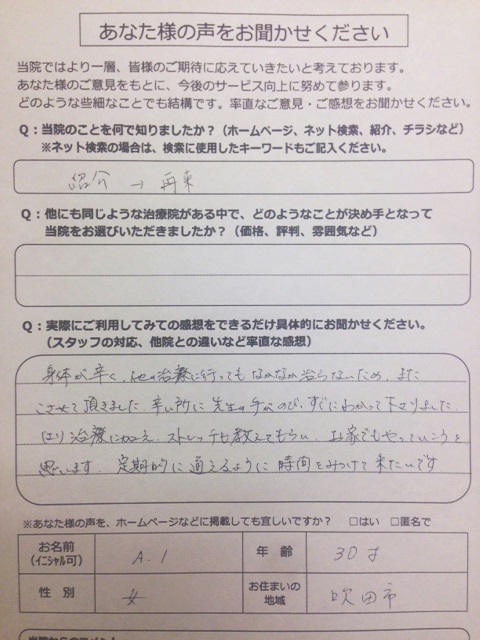 あなた様の声をお聞かせください
当院ではより一層、皆様のご期待に応えていきたいと考えております。
あなた様のご意見をもとに、今後のサービス向上に努めて参ります。
どのような些細なことでも結構です。率直なご意見・ご感想をお聞かせください。
Q：当院のことを何で知りましたか？（ホームページ、ネット検索、紹介、チラシなど）
※ネット検索の場合は、検索に使用したキーワードもご記入ください。
紹介 → 再来
Q：他にも同じような治療院がある中で、どのようなことが決め手となって
当院をお選びいただきましたか？（価格、評判、雰囲気など）
Q：実際にご利用してみての感想をできるだけ具体的にお聞かせください。
（スタッフの対応、他院との違いなど率直な感想）
身体が辛く、他の治療に行ってもなかなか治らないため、また
こさせて頂きました。辛い所に先生の手がのび、すぐにわかって下さりました。
はり治療に加え、ストレッチも教えてもらい、お家でもやっていこうと
思います。定期的に通えるように時間をみつけて来たいです
※あなた様の声を、ホームページなどに掲載しても宜しいですか？ □はい □匿名で
お名前 A.I 年 齢 30才
（イニシャル可）
性 別 女 お住まいの 吹田市
地域